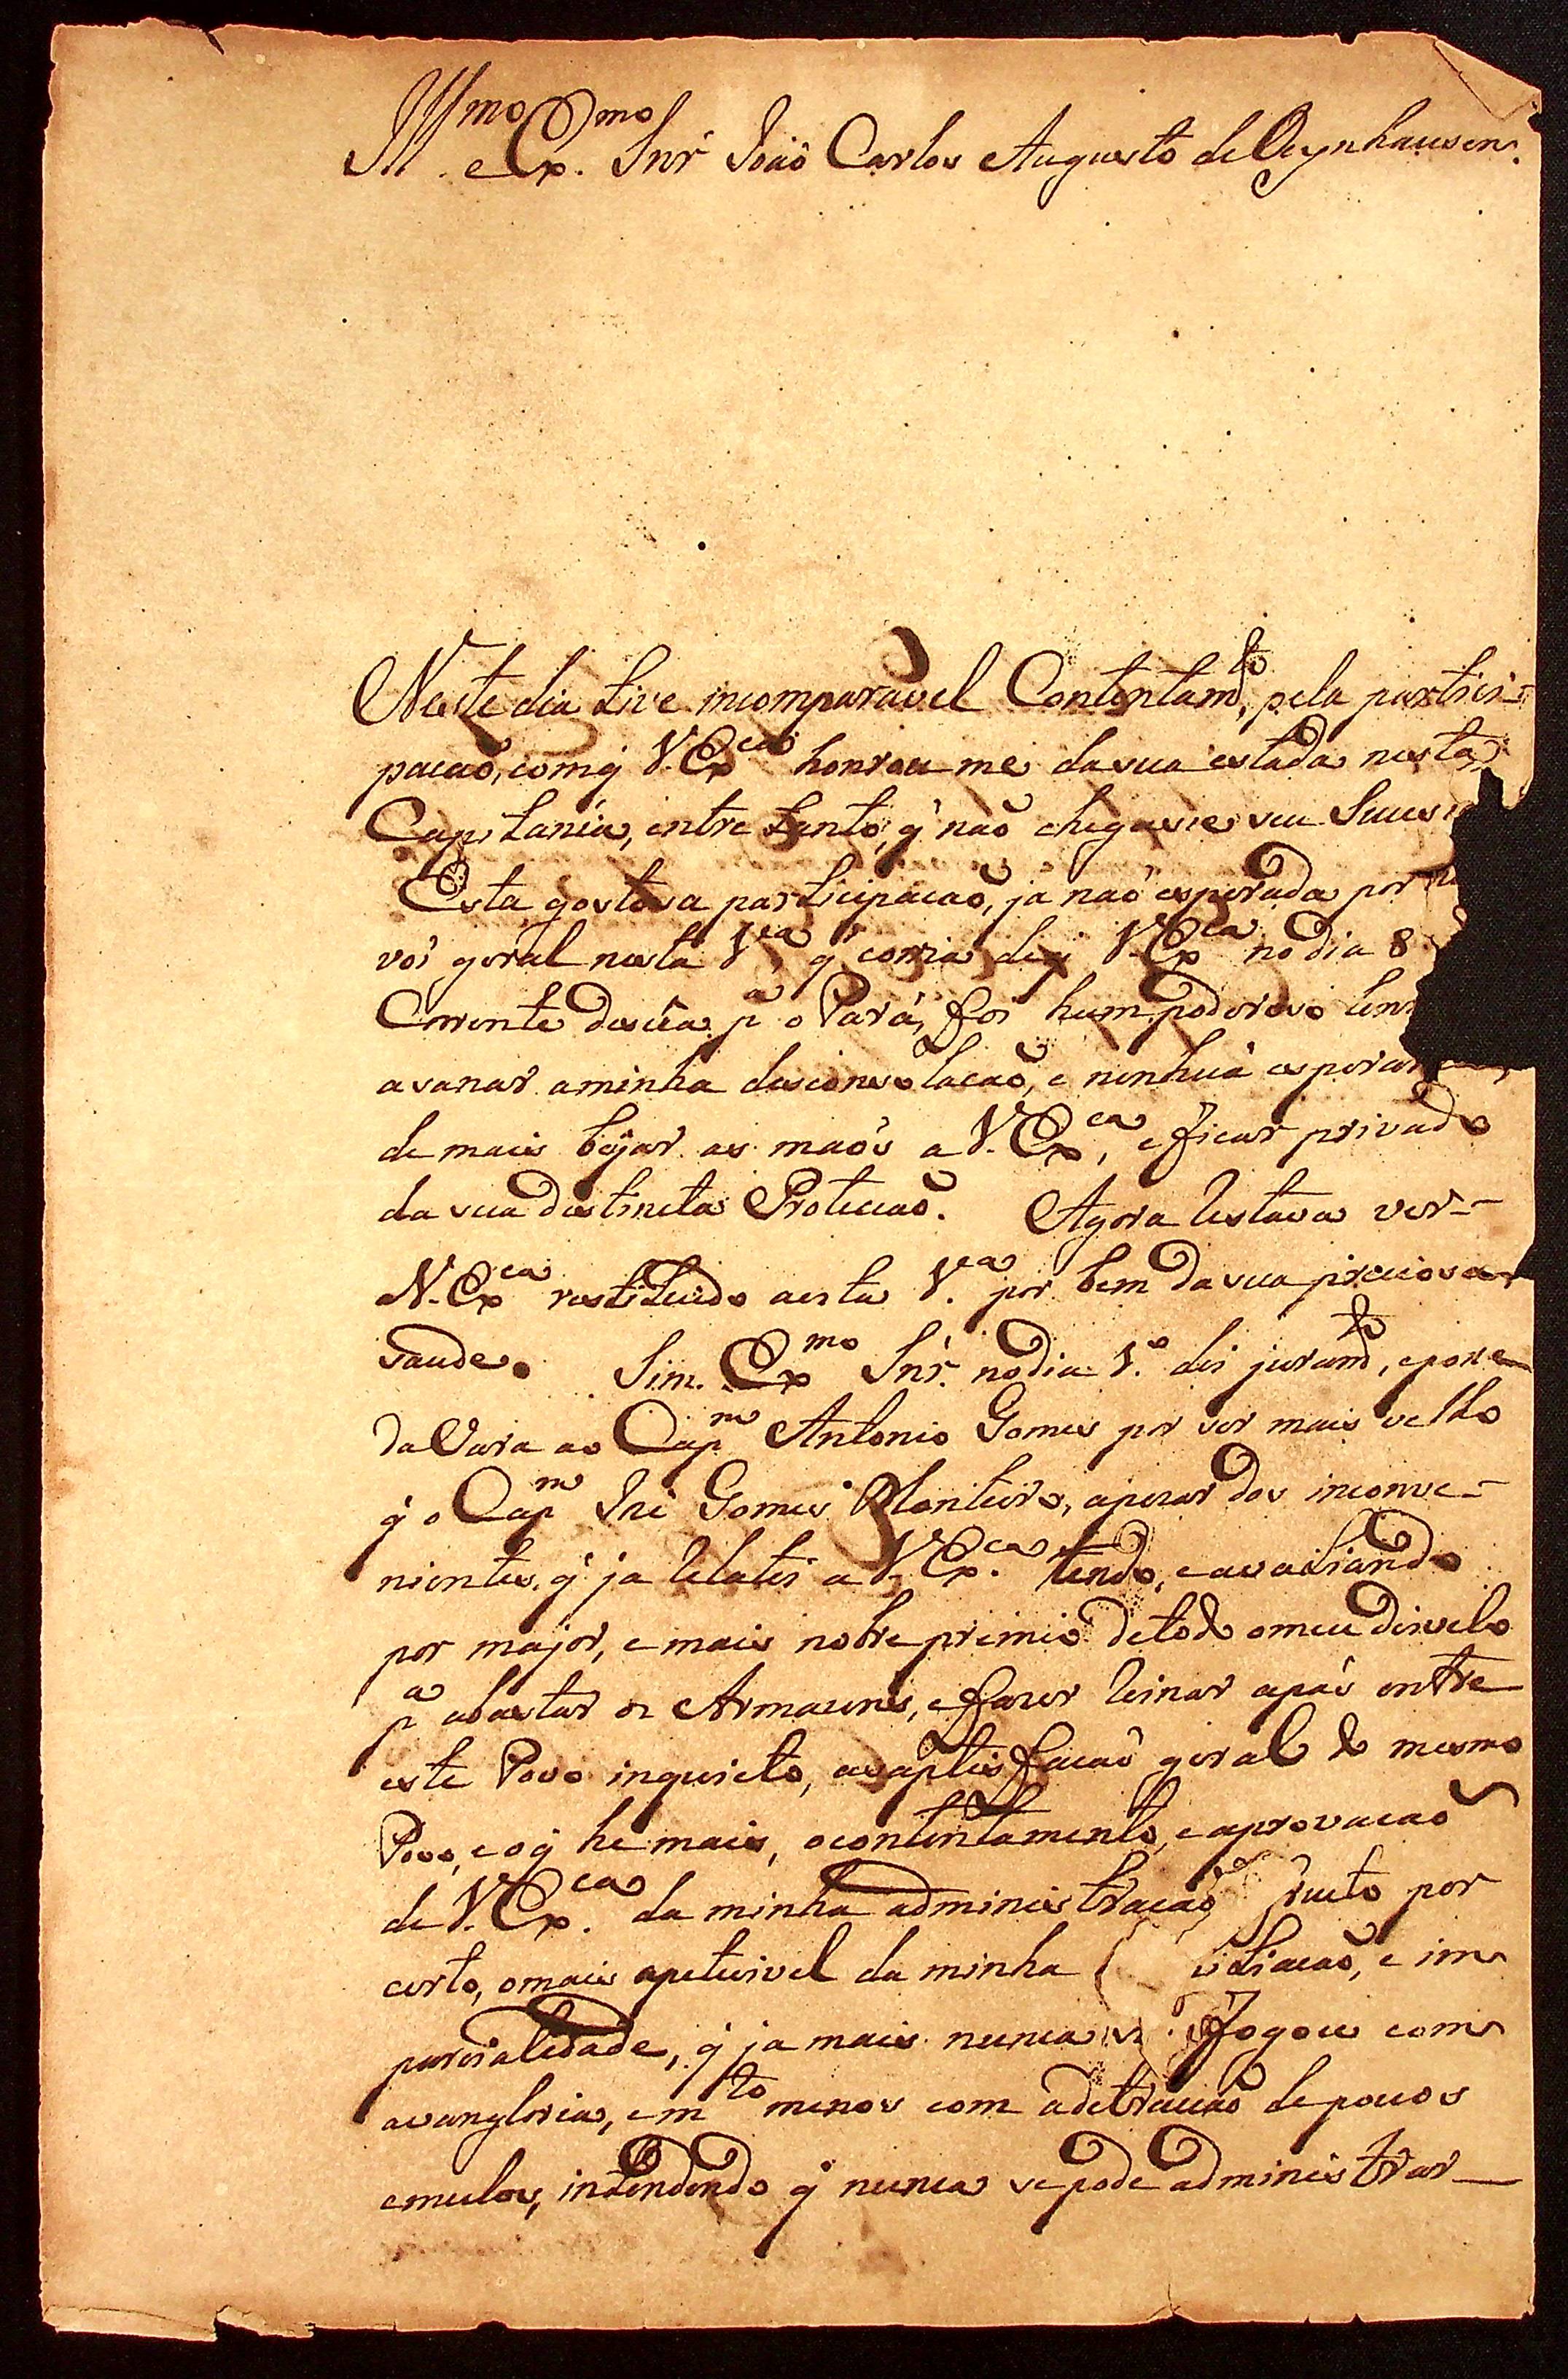 Ill.mo e Ex.mo Snr' João Carlos Augusto de Oeynhausen.
Neste dia tive incomparavel Contentam.to, pela partici-
pacaõ, com q' V. Ex.ca honrou me da sua estada nesta
Capitania, entre tanto, q' naõ chegasse seu Suces
Esta gostosa participacaõ, ja naõ esperada por
vós geral nesta V.ca, q' corria de q' V. Ex.ca no dia 8
Corrente descia p.a o Pará, foi hum poderoso
a sanar a minha desconsolacaõ, e nenhuã esperan
de mais bejar as maõs a V. Ex.ca, e ficar privado
da sua destincta Proteccaõ. Agora restava ver
V. Ex.ca restituido a esta V.ca por bem da sua preciosa
saude. Sim. Ex.mo Snr'. no dia 1.o dei juram.to, e posse
da Vara ao Cap.m Antonio Gomes por ser mais velho
q' o Cap.m Jozé Gomes Monteiro, apezar dos inconve-
nientes, q' ja relatei a V. Ex.ca tendo, e avaliando
por major, e mais nobre premio de todo o meu disvelo
p.a abastar os Armazens, e fazer reinar a pás entre
este Povo inquieto, a saptisfacaõ geral do mesmo
Povo, e o q' he mais, o contentamento, e aprovacaõ
de V. Ex.ca da minha administracaõ fructo por
certo, o mais apetecivel da minha e im
parcialidade, q' ja mais nunca jogou com
a vangloria, e m.to menos com a detraccaõ de poucos
emulos, intendendo q' nunca se pode administrar